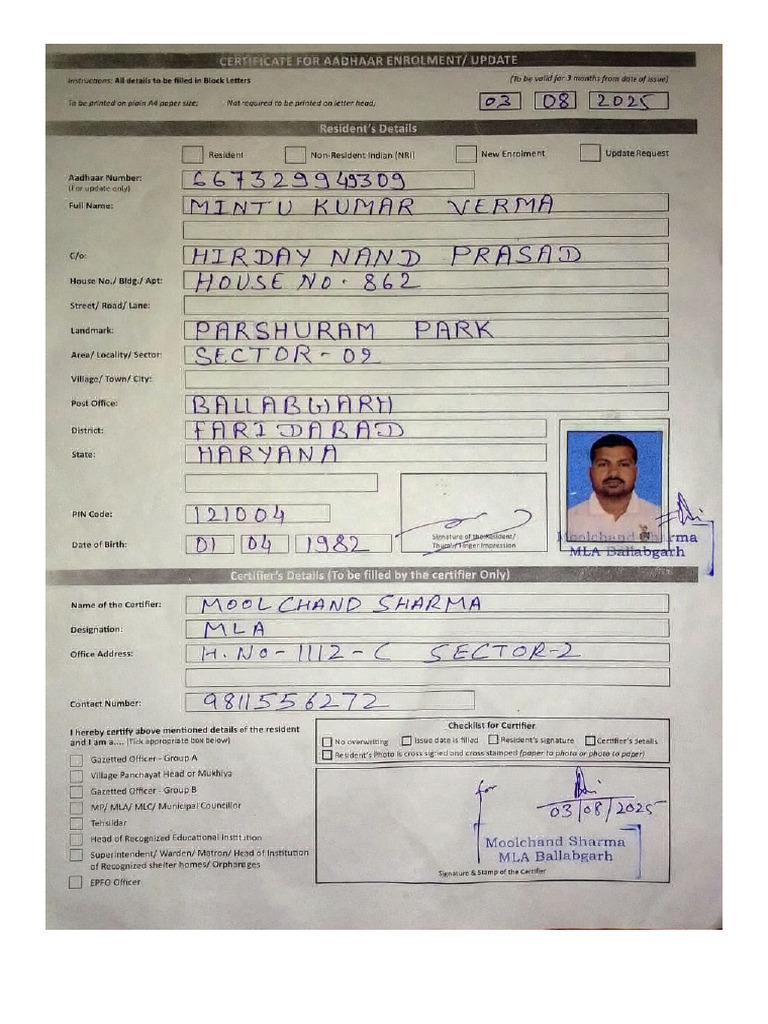 CERTIFICATE FOR AADHAAR ENROLMENT/ UPDATE
Instructions: All details to be filled in Block Letters (To be valid for 3 months from date of issue)
To be printed on plain A4 paper size; Not required to be printed on letter head; 03 08 2025
Resident's Details
Resident Non-Resident Indian (NRI) New Enrolment Update Request
Aadhaar Number: 667329949309
(For update only)
Full Name: MINTU KUMAR VERMA
C/o: HIRDAY NAND PRASAD
House No./ Bldg./ Apt: HOUSE NO. 862
Street/ Road/ Lane:
Landmark: PARSHURAM PARK
Area/ Locality/ Sector: SECTOR-09
Village/ Town/ City:
Post Office: BALLABGARH
District: FARIDABAD
State: HARYANA
PIN Code: 121004
Signature of the Resident/
Thumb/Finger Impression
Date of Birth: 01 04 1982
Moolchand Sharma
MLA Ballabgarh
Certifier's Details (To be filled by the certifier Only)
Name of the Certifier: MOOLCHAND SHARMA
Designation: MLA
Office Address: H.NO-1112-C SECTOR-2
Contact Number: 9811556272
I hereby certify above mentioned details of the resident
and I am a.... (Tick appropriate box below)
Gazetted Officer - Group A
Village Panchayat Head or Mukhiya
Gazetted Officer - Group B
MP/ MLA/ MLC/ Municipal Councillor
Tehsildar
Head of Recognized Educational Institution
Superintendent/ Warden/ Matron/ Head of Institution
of Recognized shelter homes/ Orphanages
EPFO Officer
Checklist for Certifier
No overwriting Issue date is filled Resident's signature Certifier's details
Resident's Photo is cross signed and cross stamped (paper to photo or photo to paper)
for
03/08/2025
Moolchand Sharma
MLA Ballabgarh
Signature & Stamp of the Certifier